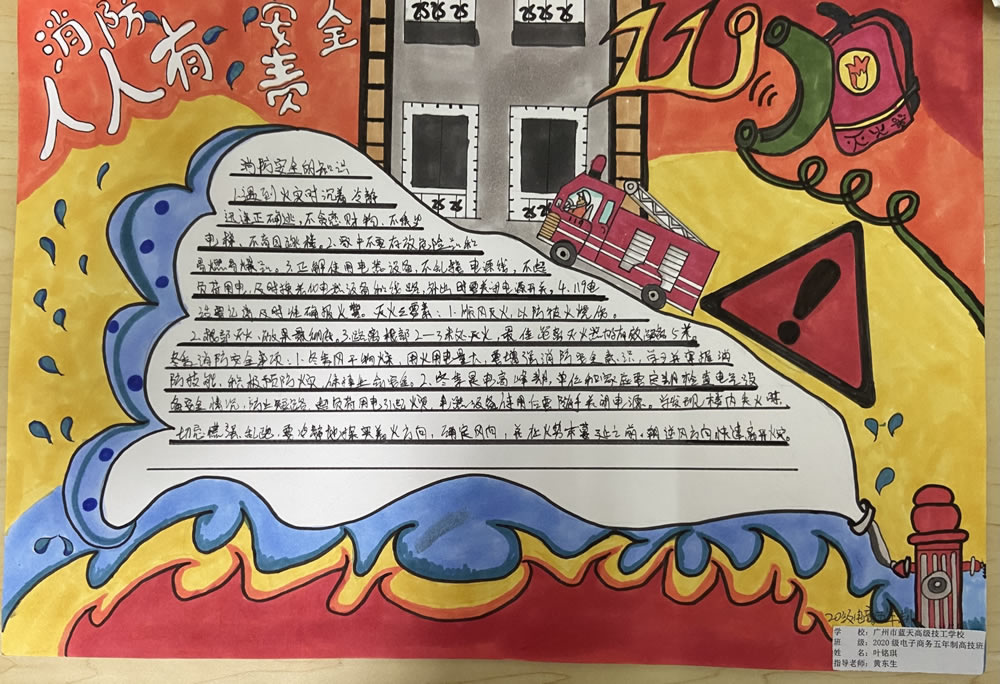 消防安全
人人有责
119
灭火器
消防安全的知识
1.遇到火灾时沉着冷静
迅速正确逃,不贪恋财物,不乘坐
电梯,不盲目跳楼。2.家中不要存放危险品和
易燃易爆品。3.正确使用电器设备,不乱接电源线,不超
负荷用电,及时
电源开关。4.119电
话要记清及时准确报火警。灭火三要素:1.顺风灭火,以防被火烧伤。
2.根部灭火,效果最彻底。3.距离根部2—3米灭火,最佳
冬季消防安全事项:1.冬季风干物燥,用火用电量大,要增强消防安全意识,学习并掌握消
防技能,积极预防火灾,保障生命安全。2.冬季是用电高峰期,单位和家庭要定期检查电气设
备安全情况,防止短路、超负荷用电引起火灾,电器设备使用后要随手关闭电源。
楼内失火时
切忌慌张、乱跑,要冷静地探明着火方向,确定风向,并在火势未蔓延之前,朝逆风方向快速离开火灾。
学 校:广州市蓝天高级技工学校
班 级:2020级电子商务五年制高技班
姓 名:叶铭琪
指导老师:黄东生